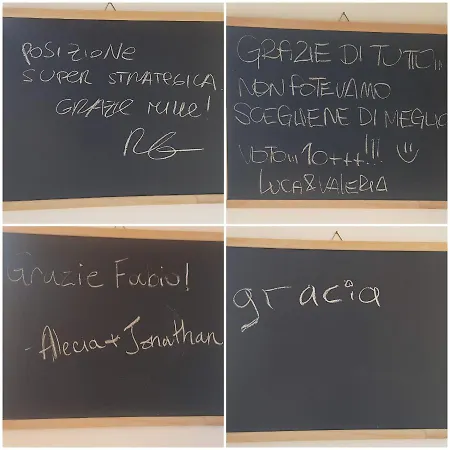 POSIZIONE
SUPER STRATEGICA.
GRAZIE MILLE!
GRAZIE DI TUTTO...
NON POTEVAMO
SCEGLIERE DI MEGLIO
VOTO... 10+++!!!
LUCA&VALERIA
Grazie Fabio!
- Alecia + Jonathan
gracia